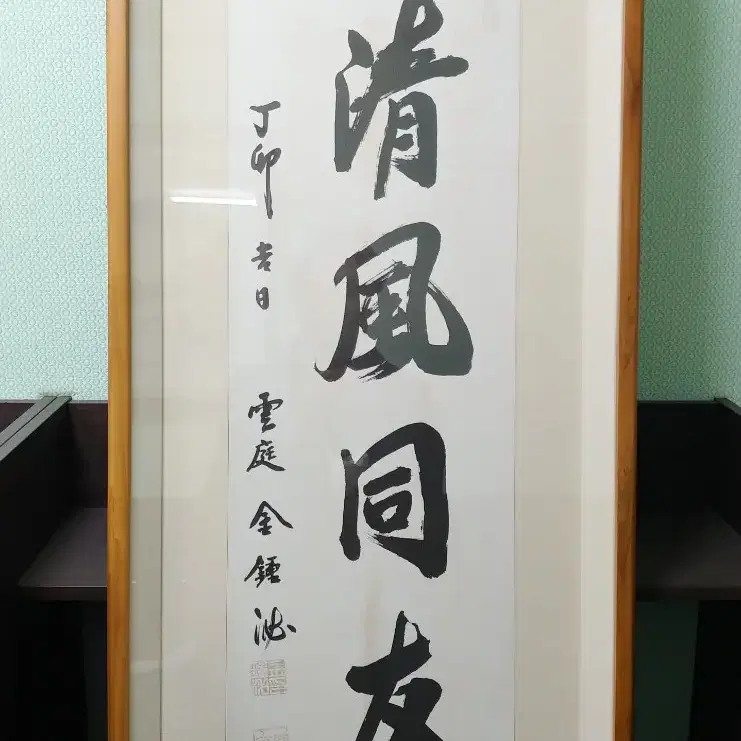 清風同友
丁卯 吉日 雲庭 金鍾泌